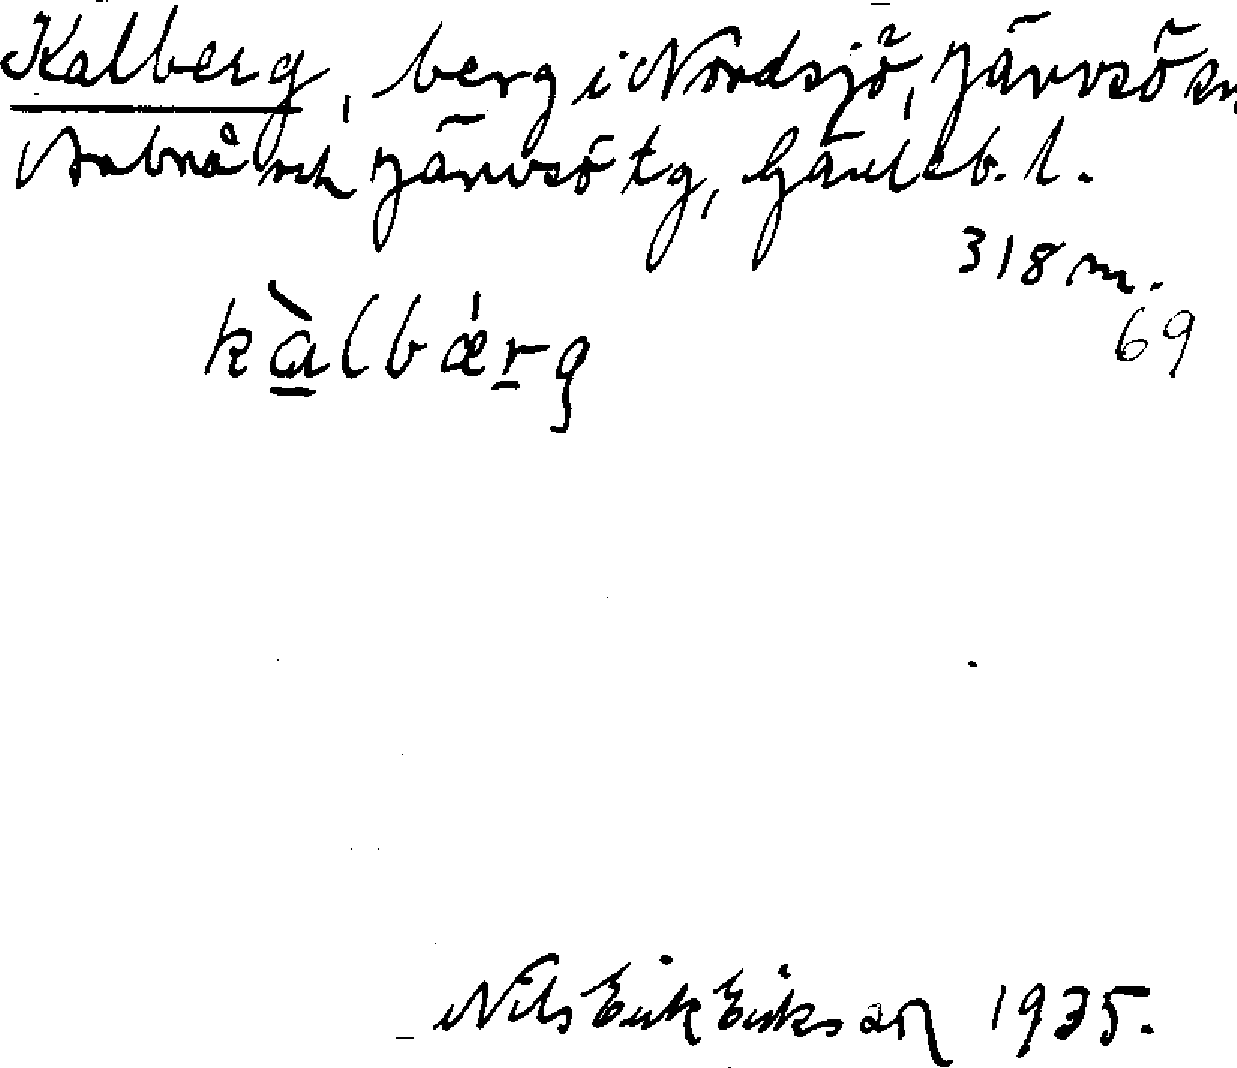 Kalberg, berg i Nordsjö, Järvsö sn,
Arbrå och Järvsö tg, Gävleb. l.
318 m.
69
kàlbǽrg
Nils Erik Eriksson 1935.